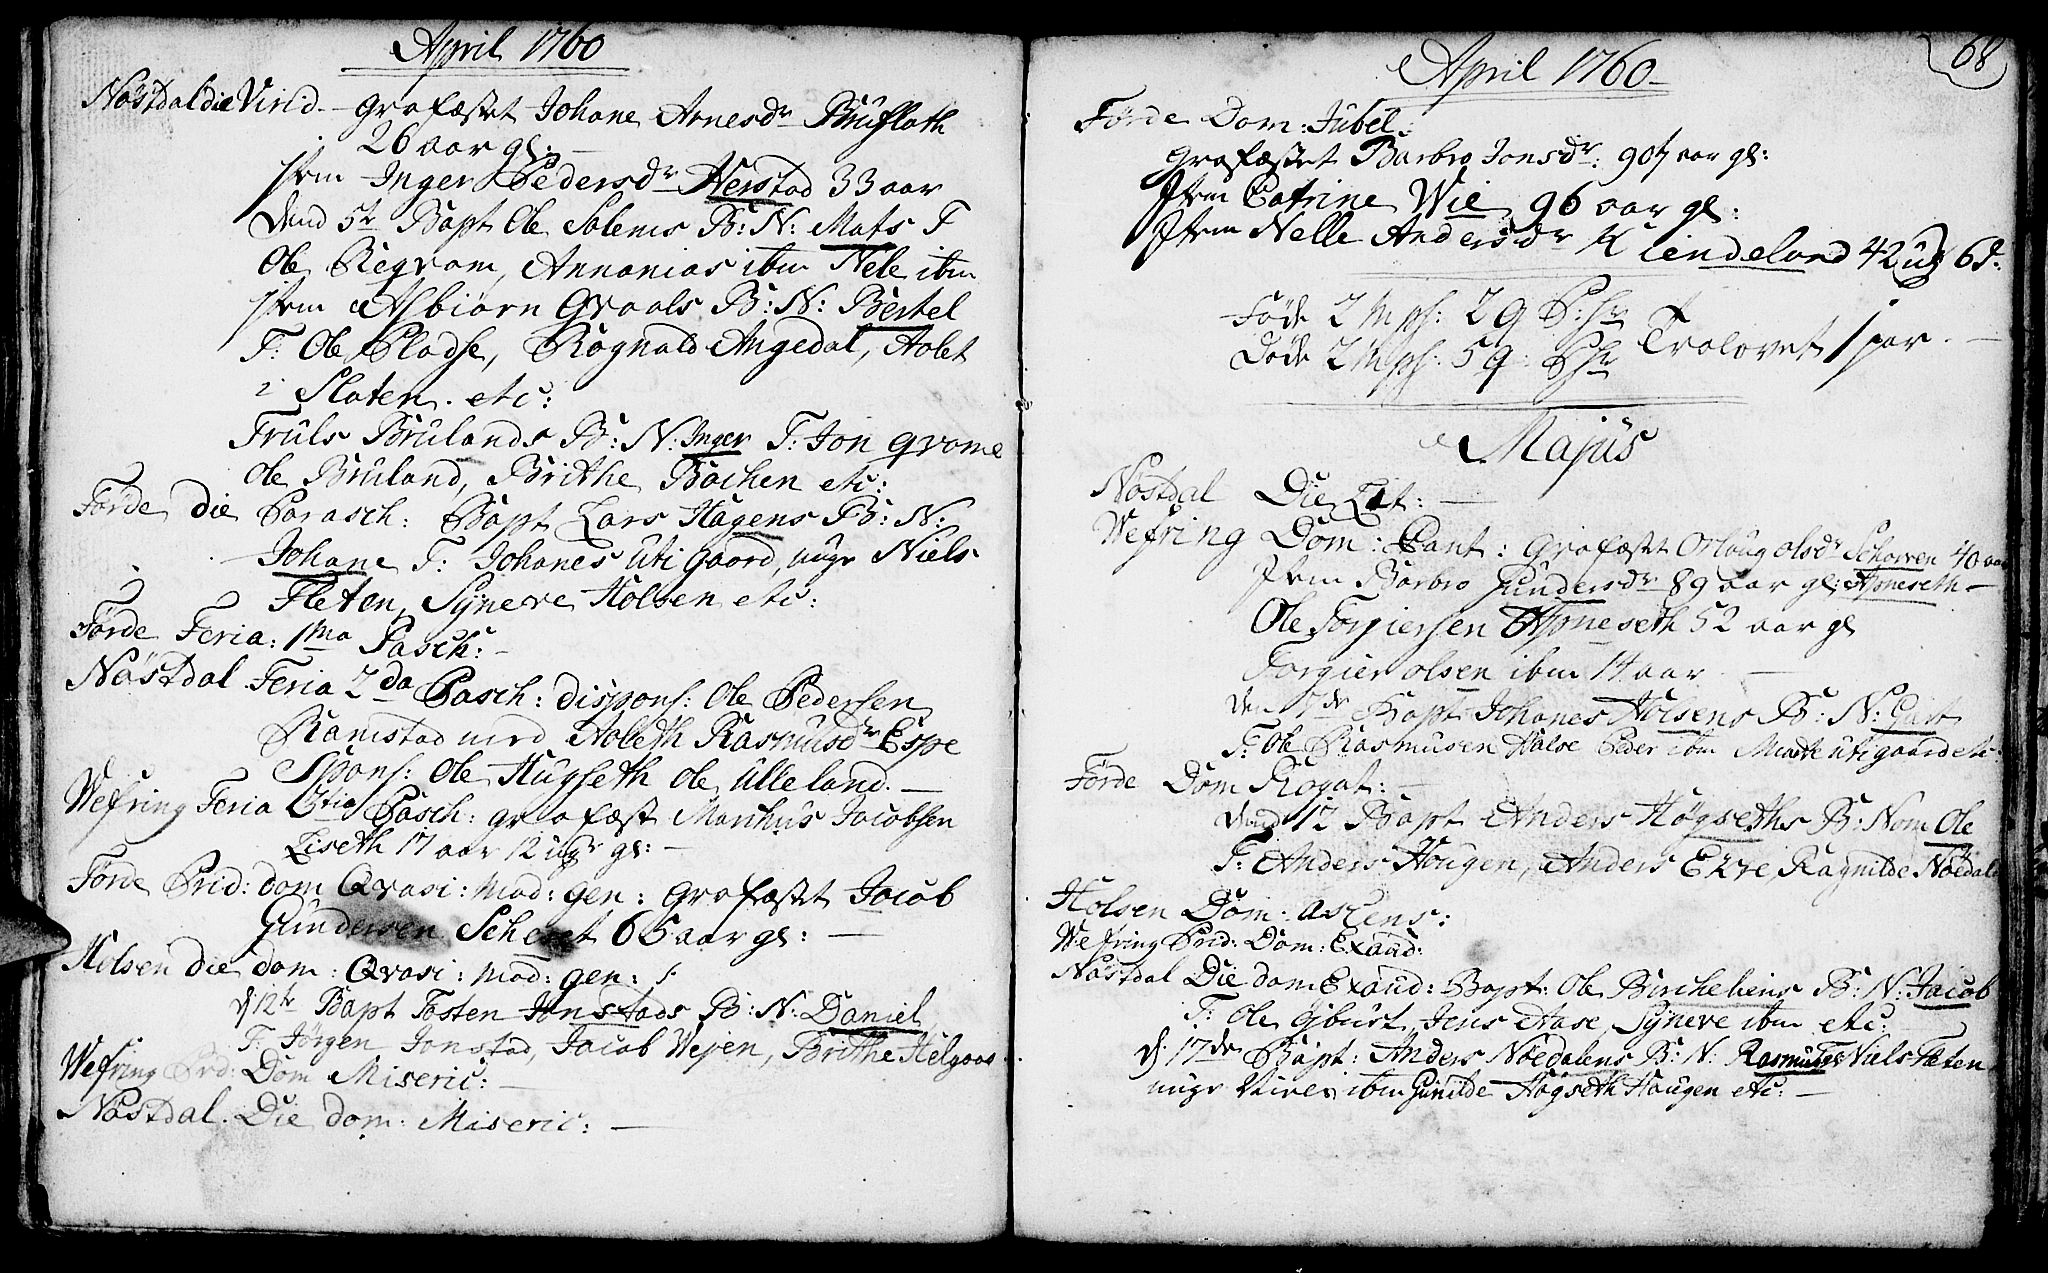 April 1760
Nöstdal die Virid. - grafæstet Johane Arnesdr Bruflath
26 aar gl: -
Item Inger Pedersdr Herstad 33 aar
dend 5te Bapt Ole Solems B: N: Mats F
Ole Reqvam, Annanias ibm Nele ibm
Item Asbiörn Qvaals B: N: Bertel
F: Ole Pladse, Rognald Angedal, Aolet
i Slaten. etc:
Truls Brulands B: N: Inger F: Jon qvame
Ole Bruland, Brithe Bachen etc:
Förde die Parasch: Bapt Lars Hagens B: N:
Johane F: Johanes uti gaard, ungr Niels
Fleten, Syneve Holsen etc:
Förde Feria: 1ma Pasch: -
Nöstdal Feria 2da Pasch: dispons: Ole Pedersen
Ramstad med Aoleth Rasmusdr Espe
Spons: Ole Hugseth Ole ulleland. -
Wefring Feria 3tia Pasch: grafæst Marchus Jacobsen
Liseth 17 aar 12 ugr gl: -
Förde Prid: dom Qvasi: mod: gen: grafæstet Jacob
Gundersen 65 aar gl: -
Holsen die dom: Qvasi: mod: gen:
d 12te Bapt Tosten Jonstads B: N: Daniel
F. Jörgen Jonstad, Jacob Vejen, Brithe Helgaas
Wefring Prd: Dom Miseric: -
Nöstdal. Die dom: Miseric: -
68
April 1760 -
Förde Dom: Jubel:
grafæstet Barbro Jonsdr: 90 aar gl:
Item Catrine Wie 96 aar gl:
Item Nelle Andersdr Klendeland 42 ug 6d:
Föde 2 Mps: 29 P:hr
Döde 2 Mps: 59 P:hr Trolovet 1 par. -
Majus
Nöstdal Die Lit: -
Wefring Dom: Cant: grafæstet Orlaug olsdr Schorven 40 aar
Item Barbro Gundersdr 89 aar gl: Apneseth -
Ole Torgiersen Apneseth 52 aar gl
Torgier olsen ibm 14 aar -
den 7de Bapt Johanes Holsens B: N: Gart
F: Ole Rasmusen Halse Peder ibm uti gaard etc
Förde Dom Rogat: -
dend 12 Bapt Anders Högseths B: Nom Ole
F: Anders Hougen, Anders Ekre, Ragnilde Nöedal
Holsen Dom: Ascens:
Wefring Prid: Dom: Exaud:
Nöstdal Die dom Exaud: Bapt: Ole Bircheliens B: N: Jacob
F: Ole Öjburt, Jens Aase, Syneve ibm etc:
d 17de Bapt: Anders Nöedalens B: N: Rasmus F: Niels Fleten
ungr ibm Gunilde Högseth Hougen etc: -